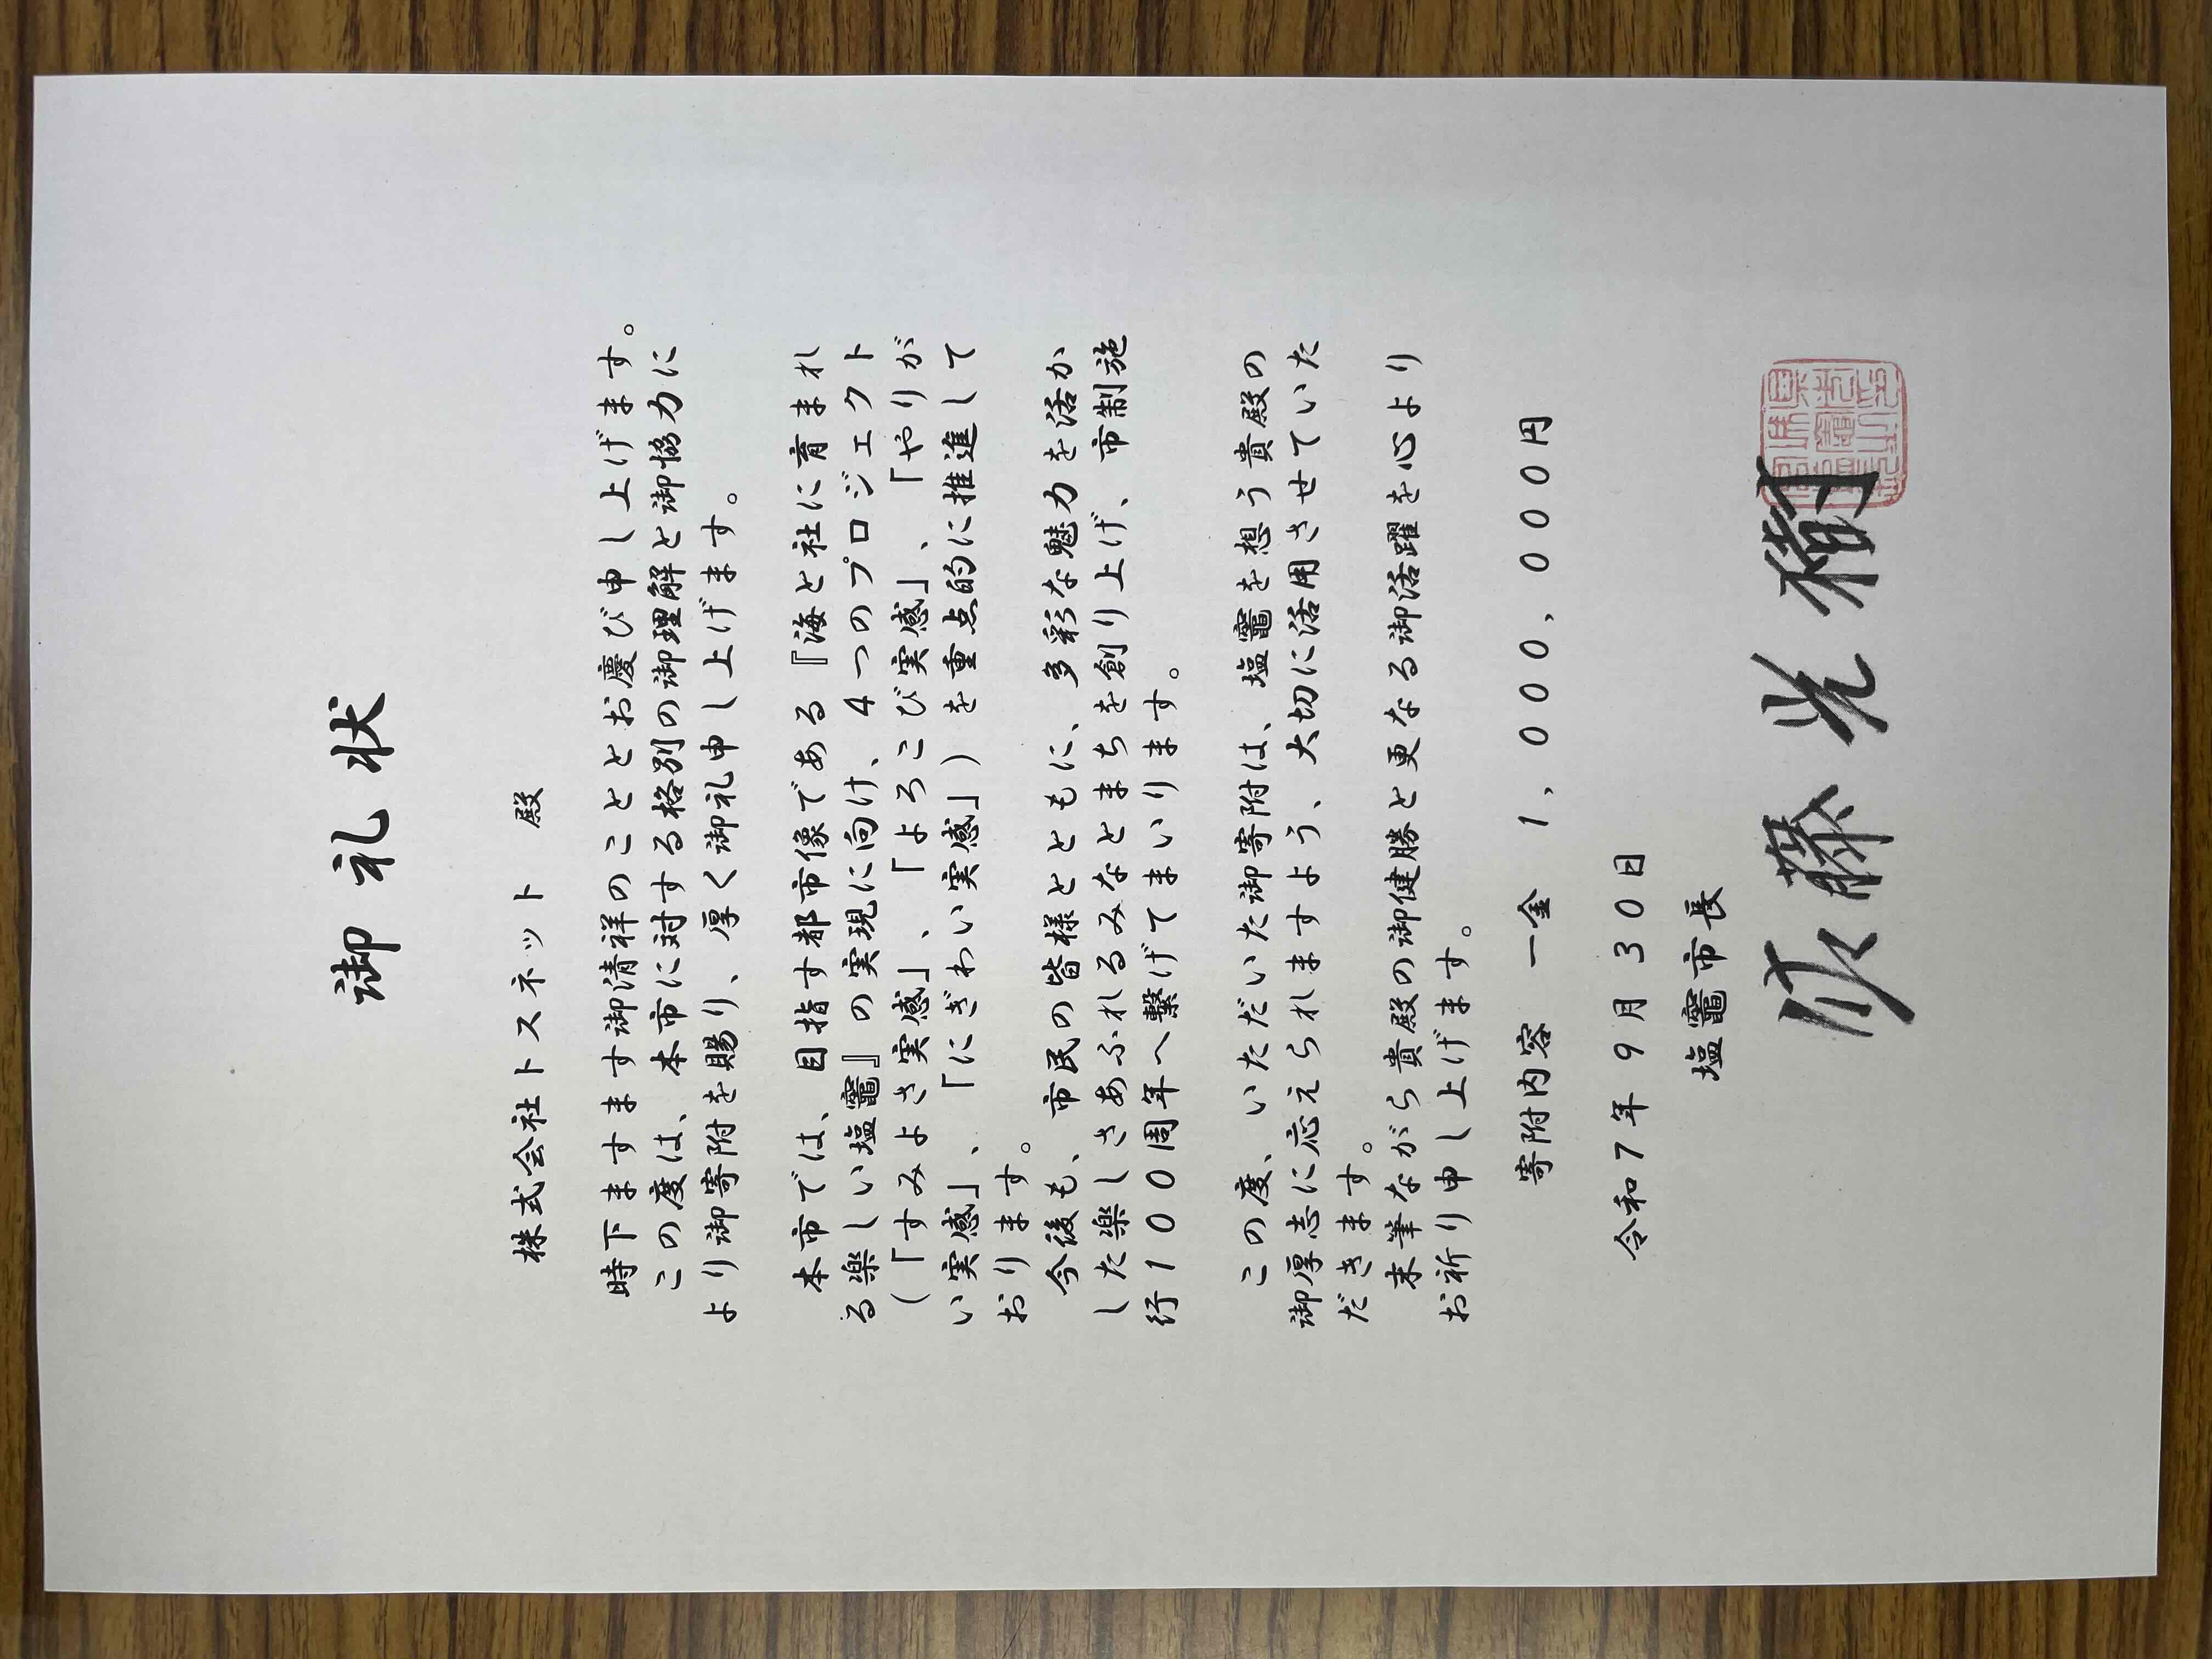 御礼状
株式会社トスネット　殿
時下ますます御清祥のこととお慶び申し上げます。
この度は、本市に対する格別の御理解と御協力に
より御寄附を賜り、厚く御礼申し上げます。
本市では、目指す都市像である『海と社に育まれ
る楽しい塩竈』の実現に向け、４つのプロジェクト
（「すみよさ実感」、「よろこび実感」、「やりが
い実感」、「にぎわい実感」）を重点的に推進して
おります。
今後も、市民の皆様とともに、多彩な魅力を活か
した楽しさあふれるみなとまちを創り上げ、市制施
行１００周年へ繋げてまいります。
この度、いただいた御寄附は、塩竈を想う貴殿の
御厚志に応えられますよう、大切に活用させていた
だきます。
末筆ながら貴殿の御健勝と更なる御活躍を心より
お祈り申し上げます。
寄附内容　一金　１，０００，０００円
令和７年９月３０日
塩竈市長
佐藤光樹